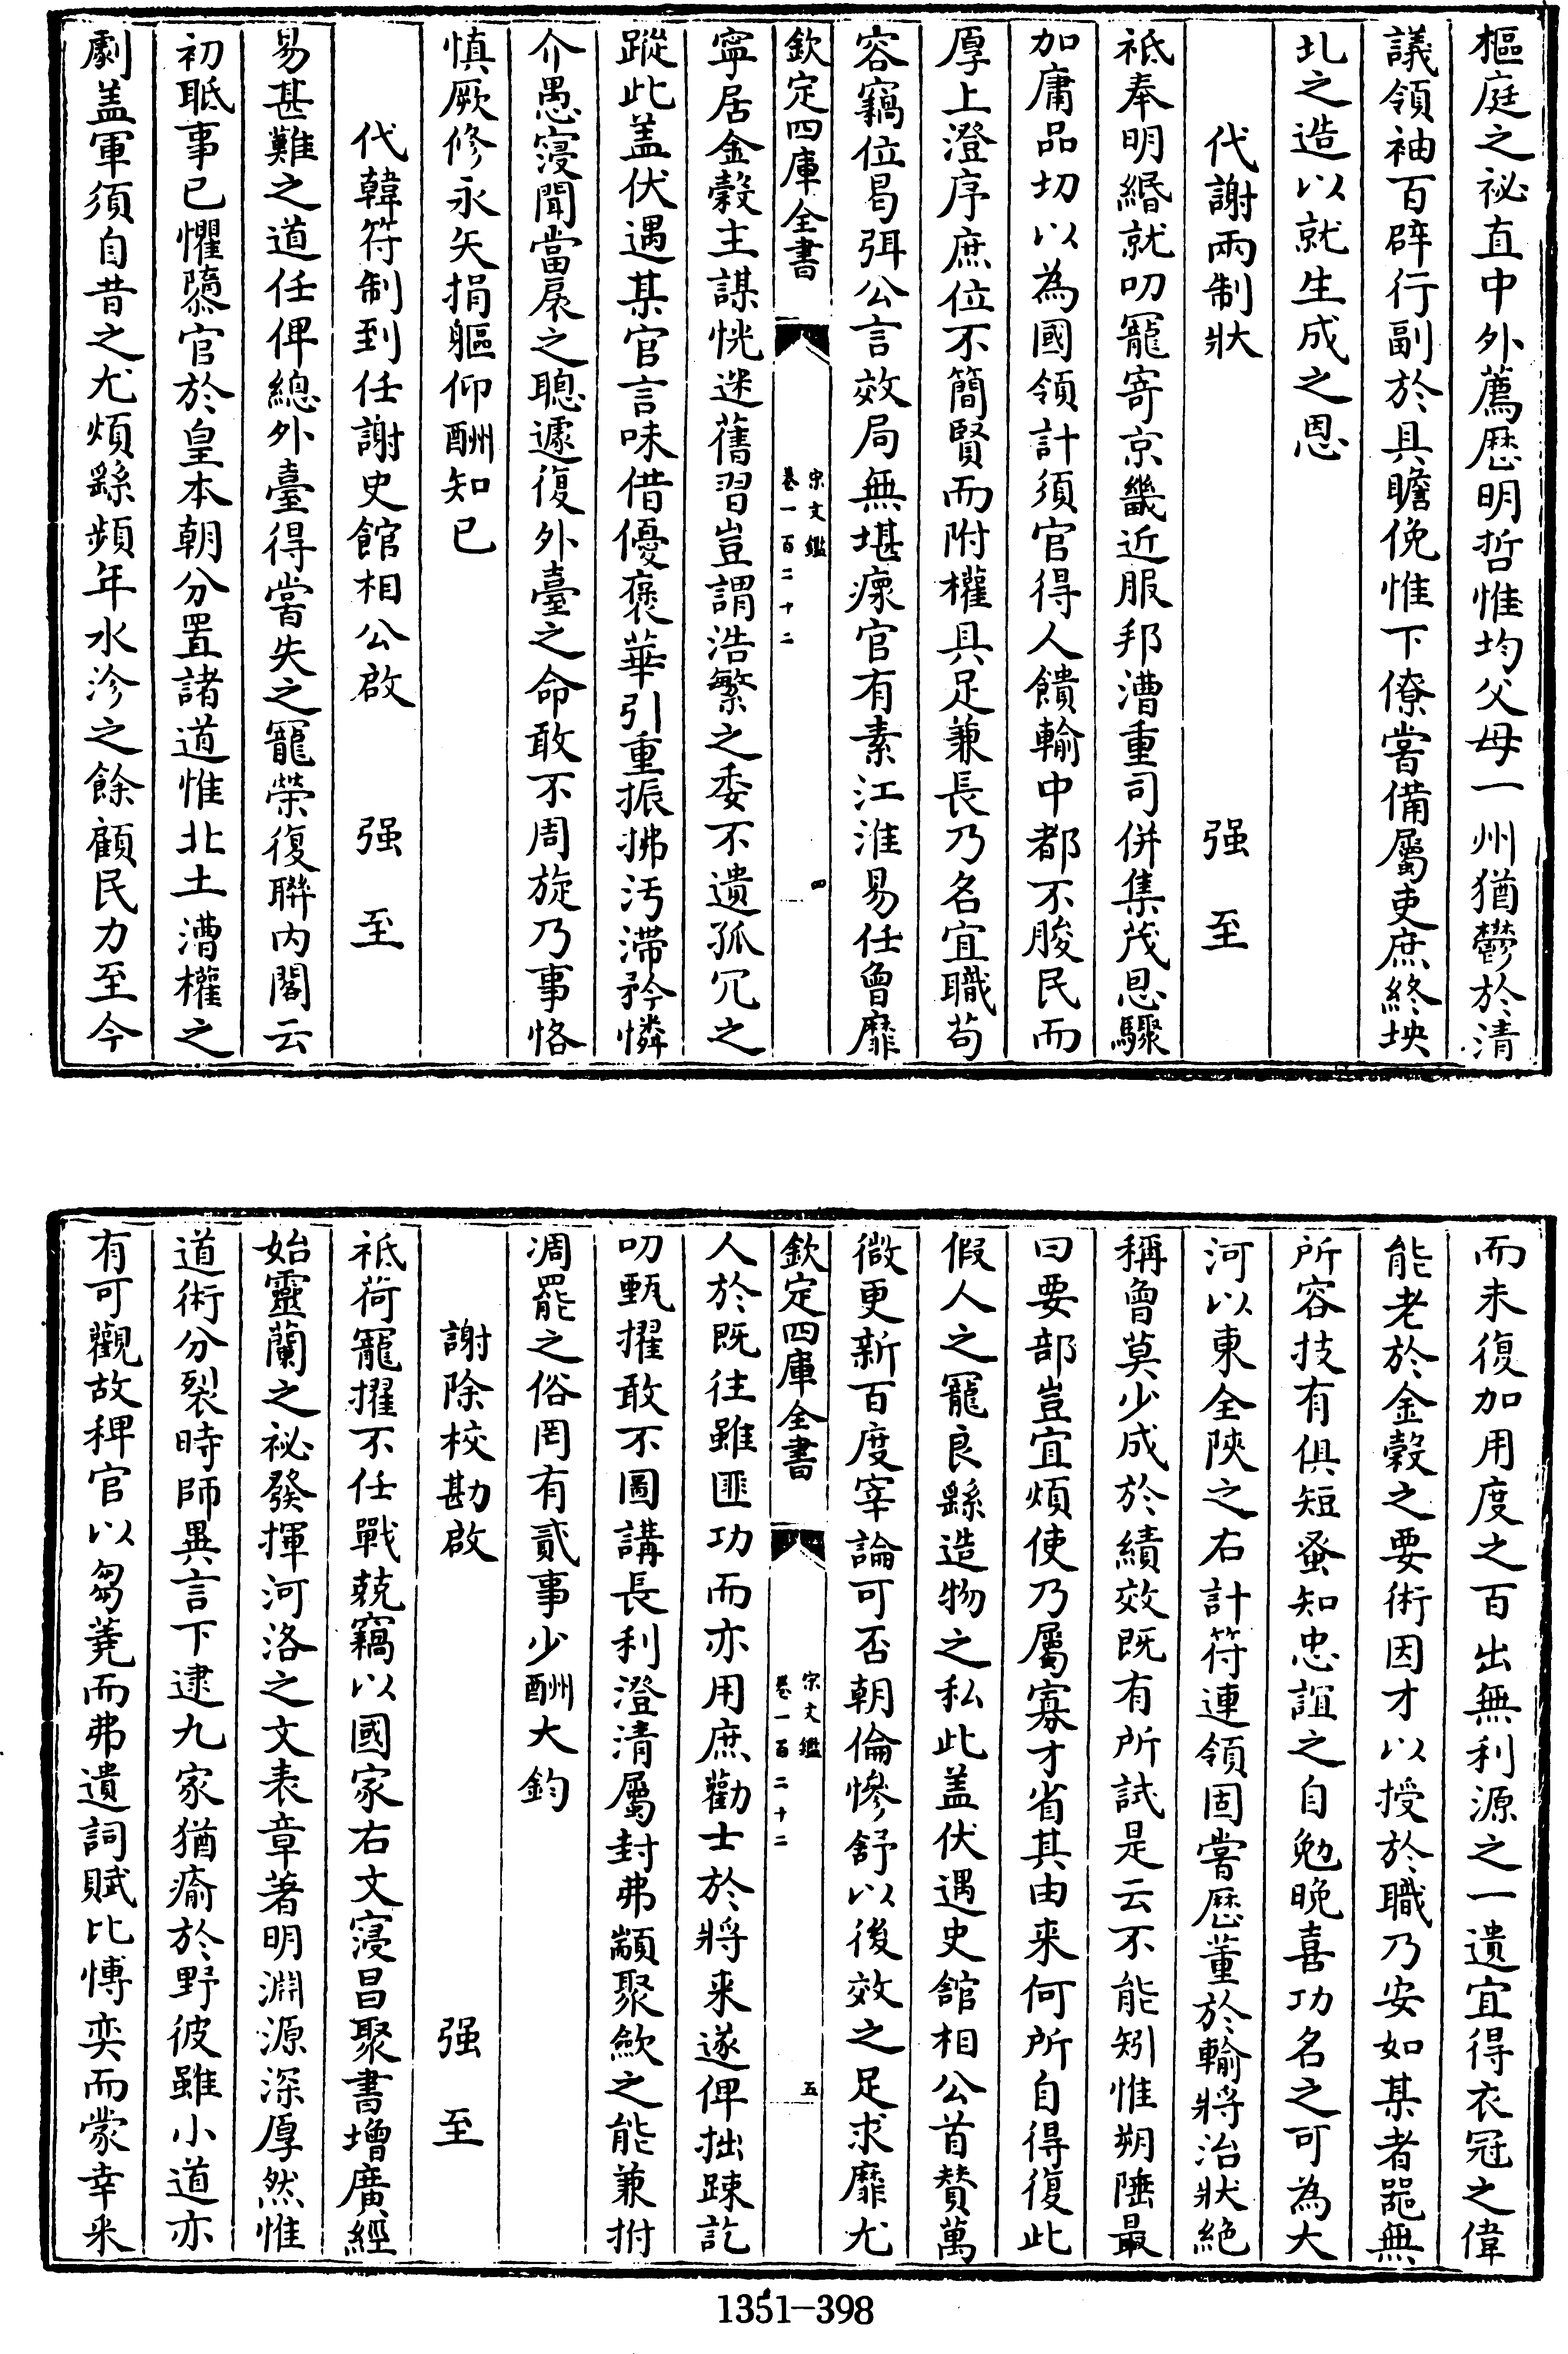 樞庭之祕直中外薦歴明哲惟均父母一州猶鬱於清
議領袖百辟行副於具瞻俛惟下僚嘗備屬吏庶終坱
圠之造以就生成之恩
代謝兩制狀 强至
祗奉明緡就叨寵寄京畿近服邦漕重司併集茂恩驟
加庸品切以為國領計須官得人饋輸中都不朘民而
厚上澄序庶位不簡賢而附權具足兼長乃名宜職苟
容竊位曷弭公言效局無堪瘝官有素江淮易任曾靡
欽定四庫全書 宋文鑑 卷一百二十二 四
寧居金穀主謀恍迷舊習豈謂浩繁之委不遺孤冗之
蹤此盖伏遇某官言味借優褒華引重振拂汚滯矜憐
介愚寖聞當扆之聰遽復外臺之命敢不周旋乃事恪
慎厥修永矢捐軀仰酬知已
代韓符制到任謝史館相公啟 强至
易甚難之道任俾總外臺得嘗失之寵榮復聨内閣云
初聀事已懼隳官於皇本朝分置諸道惟北土漕權之
劇盖軍須自昔之尤煩繇頻年水沴之餘顧民力至今
而未復加用度之百出無利源之一遺宜得衣冠之偉
能老於金穀之要術因才以授於職乃安如某者噐無
所容技有俱短蚤知忠誼之自勉晚喜功名之可為大
河以東全陝之右計符連領固嘗歴董於輸將治狀絶
稱曾莫少成於績效既有所試是云不能矧惟朔陲最
曰要部豈宜煩使乃屬寡才省其由来何所自得復此
假人之寵良繇造物之私此盖伏遇史舘相公首賛萬
微更新百度宰論可否朝倫慘舒以後效之足求靡尤
欽定四庫全書 宋文鑑 卷一百二十二 五
人於既往雖匪功而亦用庶勸士於將来遂俾拙踈訖
叨甄擢敢不圖講長利澄清屬封弗顓聚歛之能兼拊
凋罷之俗罔有貳事少酬大鈞
謝除校勘啟 强至
祗荷寵擢不任戰兢竊以國家右文寖昌聚書增廣經
始靈蘭之祕發揮河洛之文表章著明淵源深厚然惟
道術分裂時師異言下逮九家猶瘉於野彼雖小道亦
有可觀故稗官以芻蕘而弗遺詞賦比愽奕而蒙幸采
1351-398